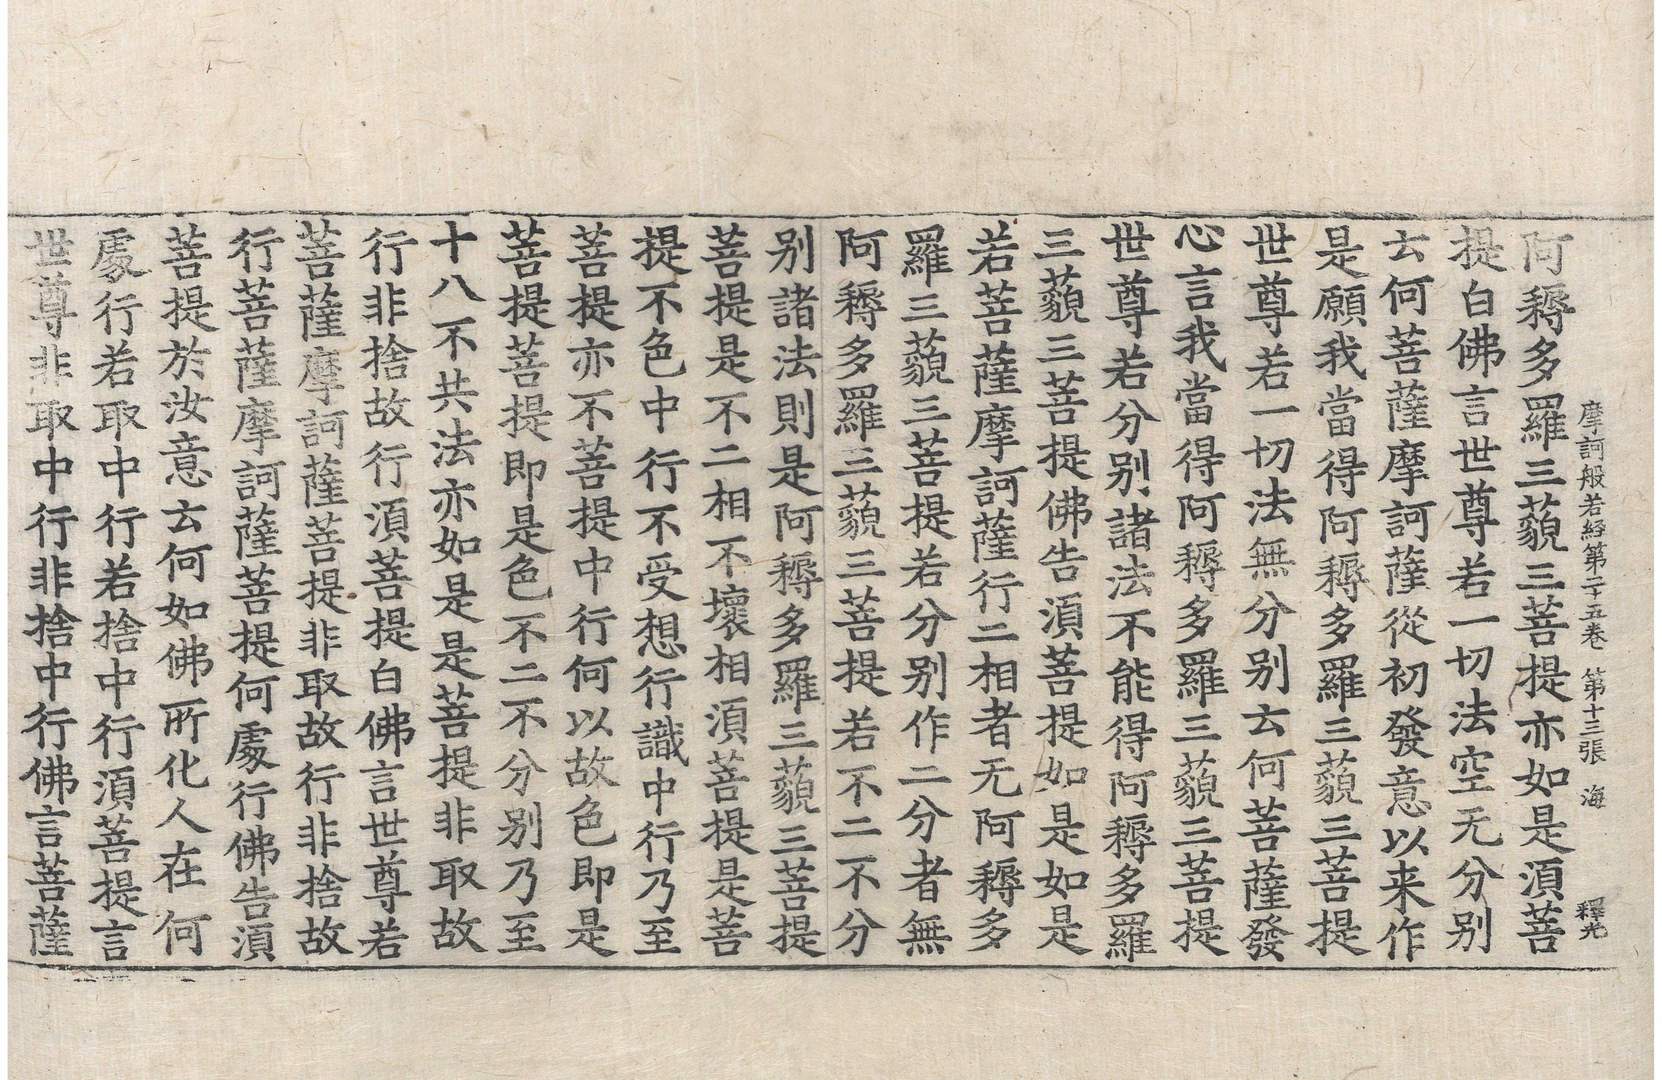 摩訶般若經第二十五卷 第十三張 海 釋光
阿耨多羅三藐三菩提亦如是須菩
提白佛言世尊若一切法空无分别
云何菩薩摩訶薩從初發意以来作
是願我當得阿耨多羅三藐三菩提
世尊若一切法無分别云何菩薩發
心言我當得阿耨多羅三藐三菩提
世尊若分别諸法不能得阿耨多羅
三藐三菩提佛告須菩提如是如是
若菩薩摩訶薩行二相者无阿耨多
羅三藐三菩提若分别作二分者無
阿耨多羅三藐三菩提若不二不分
别諸法則是阿耨多羅三藐三菩提
菩提是不二相不壞相須菩提是菩
提不色中行不受想行識中行乃至
菩提亦不菩提中行何以故色即是
菩提菩提即是色不二不分别乃至
十八不共法亦如是是菩提非取故
行非捨故行須菩提白佛言世尊若
菩薩摩訶薩菩提非取故行非捨故
行菩薩摩訶薩菩提何處行佛告須
菩提於汝意云何如佛所化人在何
處行若取中行若捨中行須菩提言
世尊非取中行非捨中行佛言菩薩